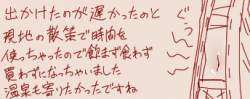 出かけたのが遅かったのと
現地の散策で時間を
使っちゃったので飲まず食わず
買わずになっちゃいました
温泉も寄りたかったですね
ぐぅ〜